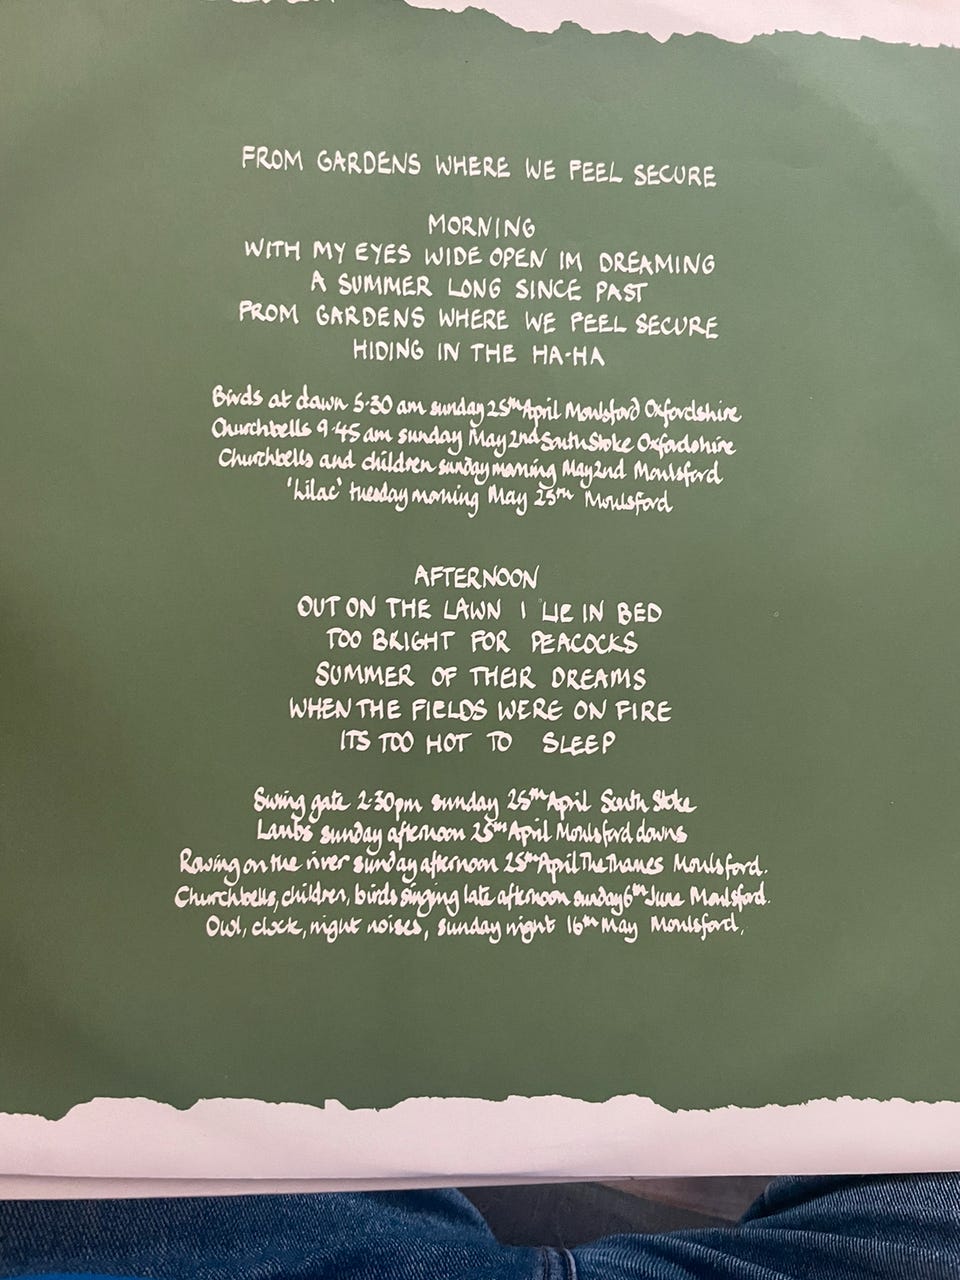 FROM GARDENS WHERE WE FEEL SECURE
MORNING
WITH MY EYES WIDE OPEN IM DREAMING
A SUMMER LONG SINCE PAST
FROM GARDENS WHERE WE FEEL SECURE
HIDING IN THE HA-HA
Birds at dawn 5·30 am sunday 25th April Moulsford Oxfordshire
Churchbells 9·45 am sunday May 2nd South Stoke Oxfordshire
Churchbells and children sunday morning May 2nd Moulsford
'Lilac' tuesday morning May 25th Moulsford
AFTERNOON
OUT ON THE LAWN I LIE IN BED
TOO BRIGHT FOR PEACOCKS
SUMMER OF THEIR DREAMS
WHEN THE FIELDS WERE ON FIRE
ITS TOO HOT TO SLEEP
Swing gate 2·30pm sunday 25th April South Stoke
Lambs sunday afternoon 25th April Moulsford downs
Rowing on the river sunday afternoon 25th April The Thames Moulsford.
Churchbells, children, birds singing late afternoon sunday 6th June Moulsford.
Owl, clock, night noises, sunday night 16th May Moulsford.